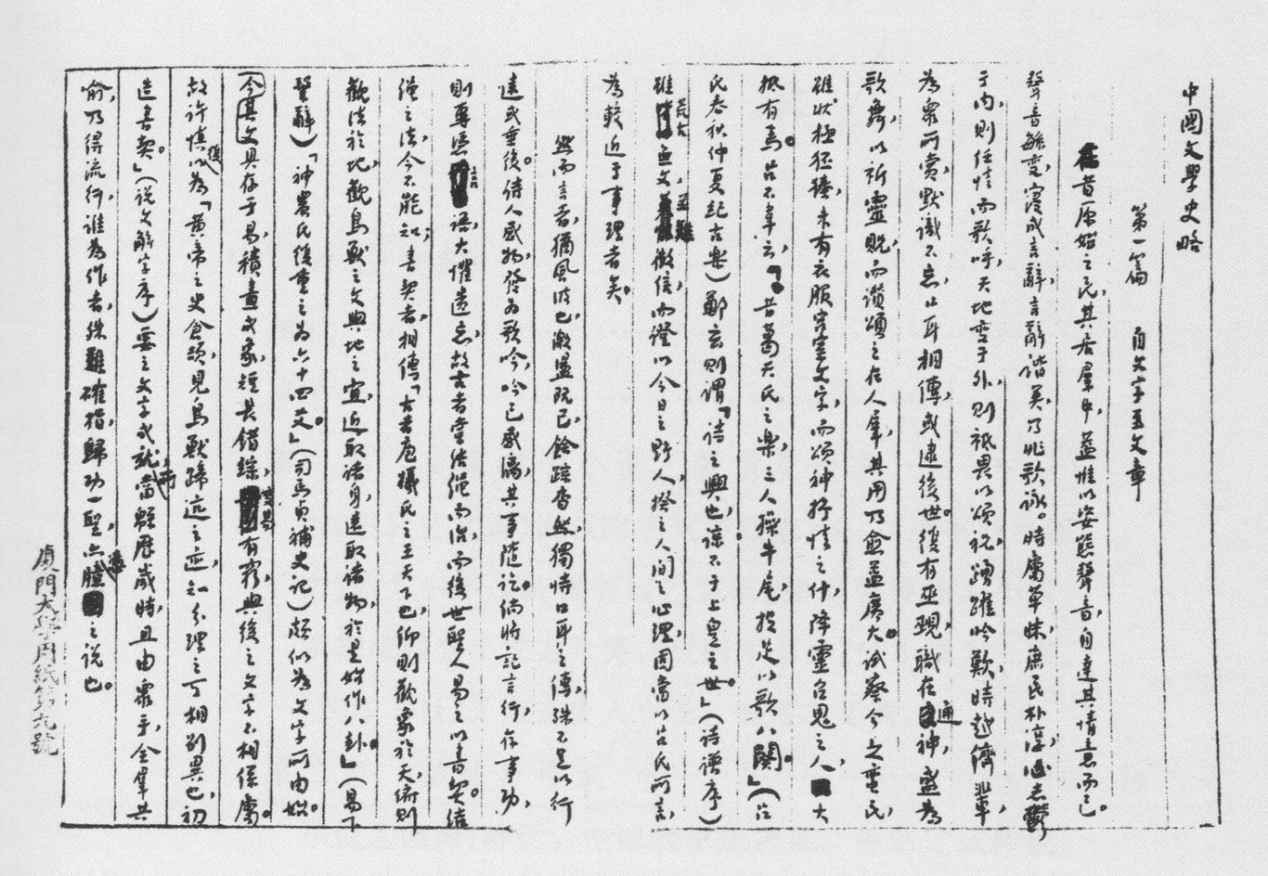 中國文學史略
第一篇　自文字至文章
在昔原始之民，其居羣中，蓋惟以姿態聲音，自達其情意而已。
聲音繇變，寖成言辭，言辭諧美，乃兆歌詠。時屬草昧，庶民朴淳，心志鬱
于內，則任情而歌呼，天地變于外，則祗畏以頌祝，踴躍吟歎，時越儕輩，
為衆所賞，默識不忘，口耳相傳，或逮後世。復有巫覡，職在通神，盛為
歌舞，以祈靈貺，而讚頌之在人羣，其用乃愈益廣大。試察今之蠻民，
雖狀極狉獉，未有衣服宮室文字，而頌神抒情之什，降靈召鬼之人，大
抵有焉。呂不韋云，「昔葛天氏之樂，三人操牛尾，投足以歌八闋。」（呂
氏春秋仲夏紀古樂）鄭玄則謂「詩之興也，諒不于上皇之世。」（詩譜序）
雖荒古無文，並難徵信，而證以今日之野人，揆之人間之心理，固當以呂氏所言，
為較近于事理者矣。
然而言者，猶風波也，激盪既已，餘踪杳然，獨恃口耳之傳，殊不足以行
遠或垂後。詩人感物，發為歌吟，吟已感漓，其事隨訖。倘將記言行，存事功，
則專憑言語，大懼遺忘，故古者嘗結繩而治，而後世聖人易之以書契。結
繩之法，今不能知；書契者，相傳「古者庖犧氏之王天下也，仰則觀象於天，俯則
觀法於地，觀鳥獸之文與地之宜，近取諸身，遠取諸物，於是始作八卦。」（易下
繫辭）「神農氏復重之為六十四爻。」（司馬貞補史記）頗似為文字所由始。
今其文具存于易，積畫成象，短長錯綜，變易有窮，與後之文字不相係屬。
故許慎復以為「黃帝之史倉頡，見鳥獸蹄迒之迹，知分理之可相別異也，初
造書契。」（說文解字序）要之文字成就，所當緜歷歲時，且由衆手，全羣共
喻，乃得流行，誰為作者，殊難確指，歸功一聖，亦憑臆之說也。
廈門大學用紙第九號